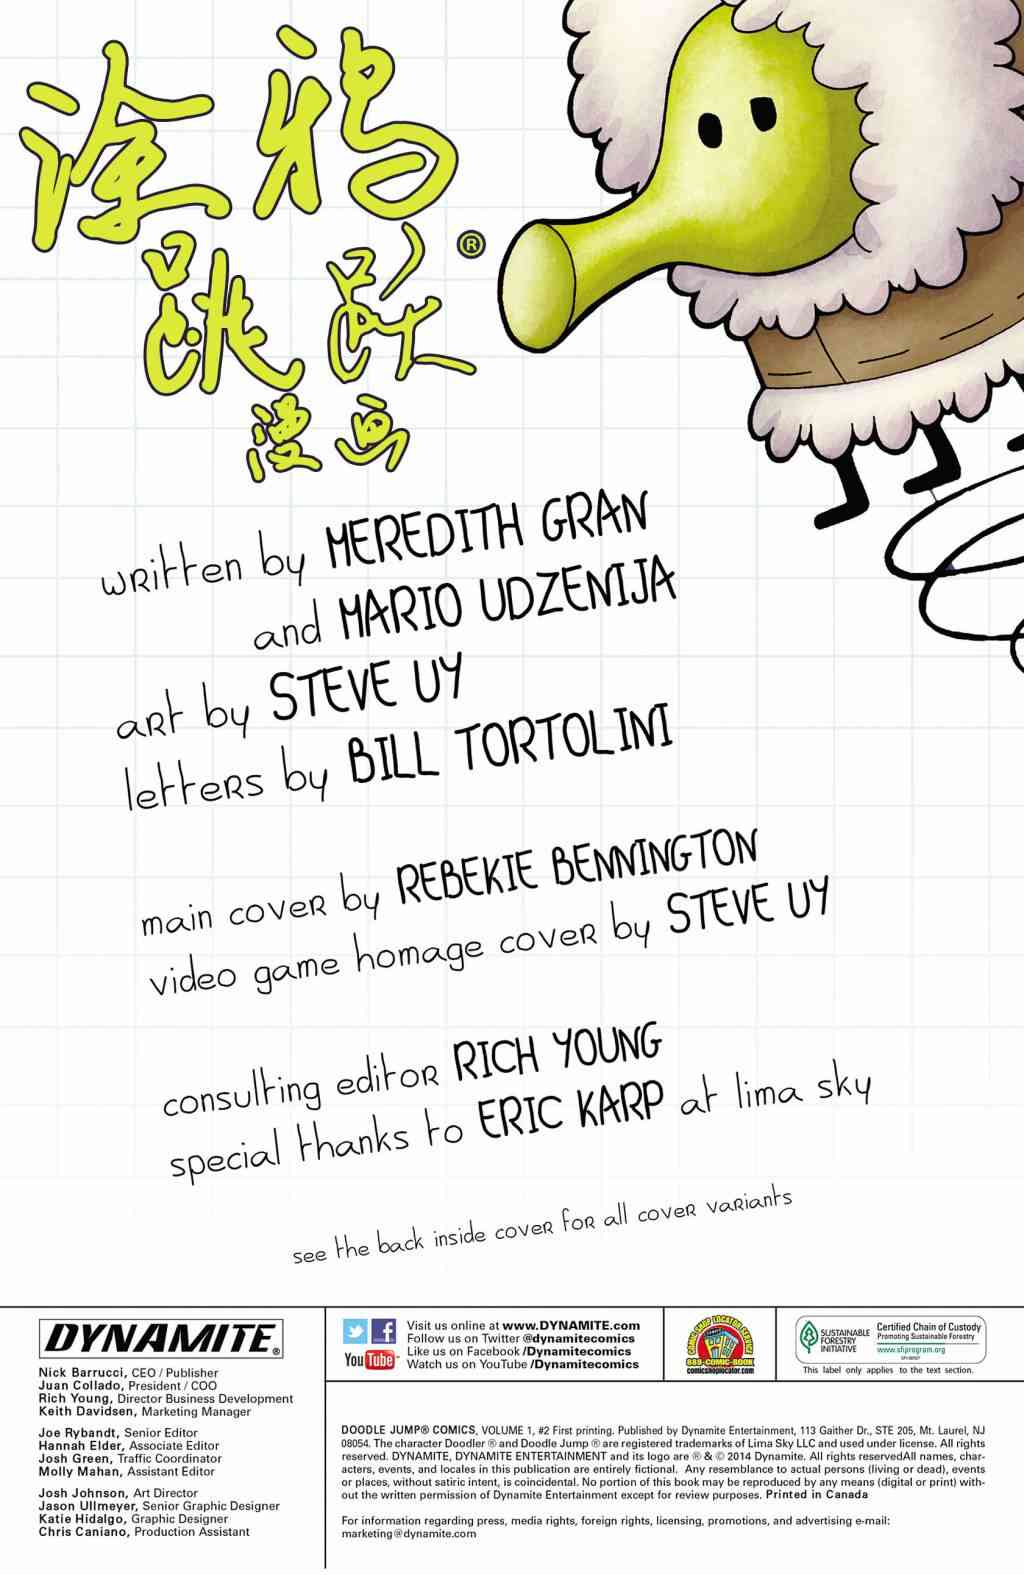 涂鸦
跳跃®
漫画
written by MEREDITH GRAN
and MARIO UDZENIJA
art by STEVE UY
letters by BILL TORTOLINI
main cover by REBEKIE BENNINGTON
video game homage cover by STEVE UY
consulting editor RICH YOUNG
special thanks to ERIC KARP at lima sky
see the back inside cover for all cover variants
DYNAMITE®
Nick Barrucci, CEO / Publisher
Juan Collado, President / COO
Rich Young, Director Business Development
Keith Davidsen, Marketing Manager
Joe Rybandt, Senior Editor
Hannah Elder, Associate Editor
Josh Green, Traffic Coordinator
Molly Mahan, Assistant Editor
Josh Johnson, Art Director
Jason Ullmeyer, Senior Graphic Designer
Katie Hidalgo, Graphic Designer
Chris Caniano, Production Assistant
Visit us online at www.DYNAMITE.com
Follow us on Twitter @dynamitecomics
Like us on Facebook /Dynamitecomics
You Tube Watch us on YouTube /Dynamitecomics
COMIC SHOP LOCATOR SERVICE
888-COMIC-BOOK
comicshoplocator.com
SUSTAINABLE
FORESTRY
INITIATIVE
Certified Chain of Custody
Promoting Sustainable Forestry
www.sfiprogram.org
This label only applies to the text section.
DOODLE JUMP® COMICS, VOLUME 1, #2 First printing. Published by Dynamite Entertainment, 113 Gaither Dr., STE 205, Mt. Laurel, NJ
08054. The character Doodler ® and Doodle Jump ® are registered trademarks of Lima Sky LLC and used under license. All rights
reserved. DYNAMITE, DYNAMITE ENTERTAINMENT and its logo are ® & © 2014 Dynamite. All rights reservedAll names, char-
acters, events, and locales in this publication are entirely fictional. Any resemblance to actual persons (living or dead), events
or places, without satiric intent, is coincidental. No portion of this book may be reproduced by any means (digital or print) with-
out the written permission of Dynamite Entertainment except for review purposes. Printed in Canada
For information regarding press, media rights, foreign rights, licensing, promotions, and advertising e-mail:
marketing@dynamite.com